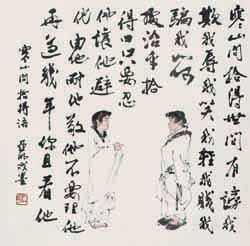 寒山問曰世間有謗我
欺我辱我笑我輕我賤我
騙我如何
處治乎拾
得曰只要忍
他讓他避
他由他耐他敬他不要理他
再過幾年你且看他
寒山問拾得語